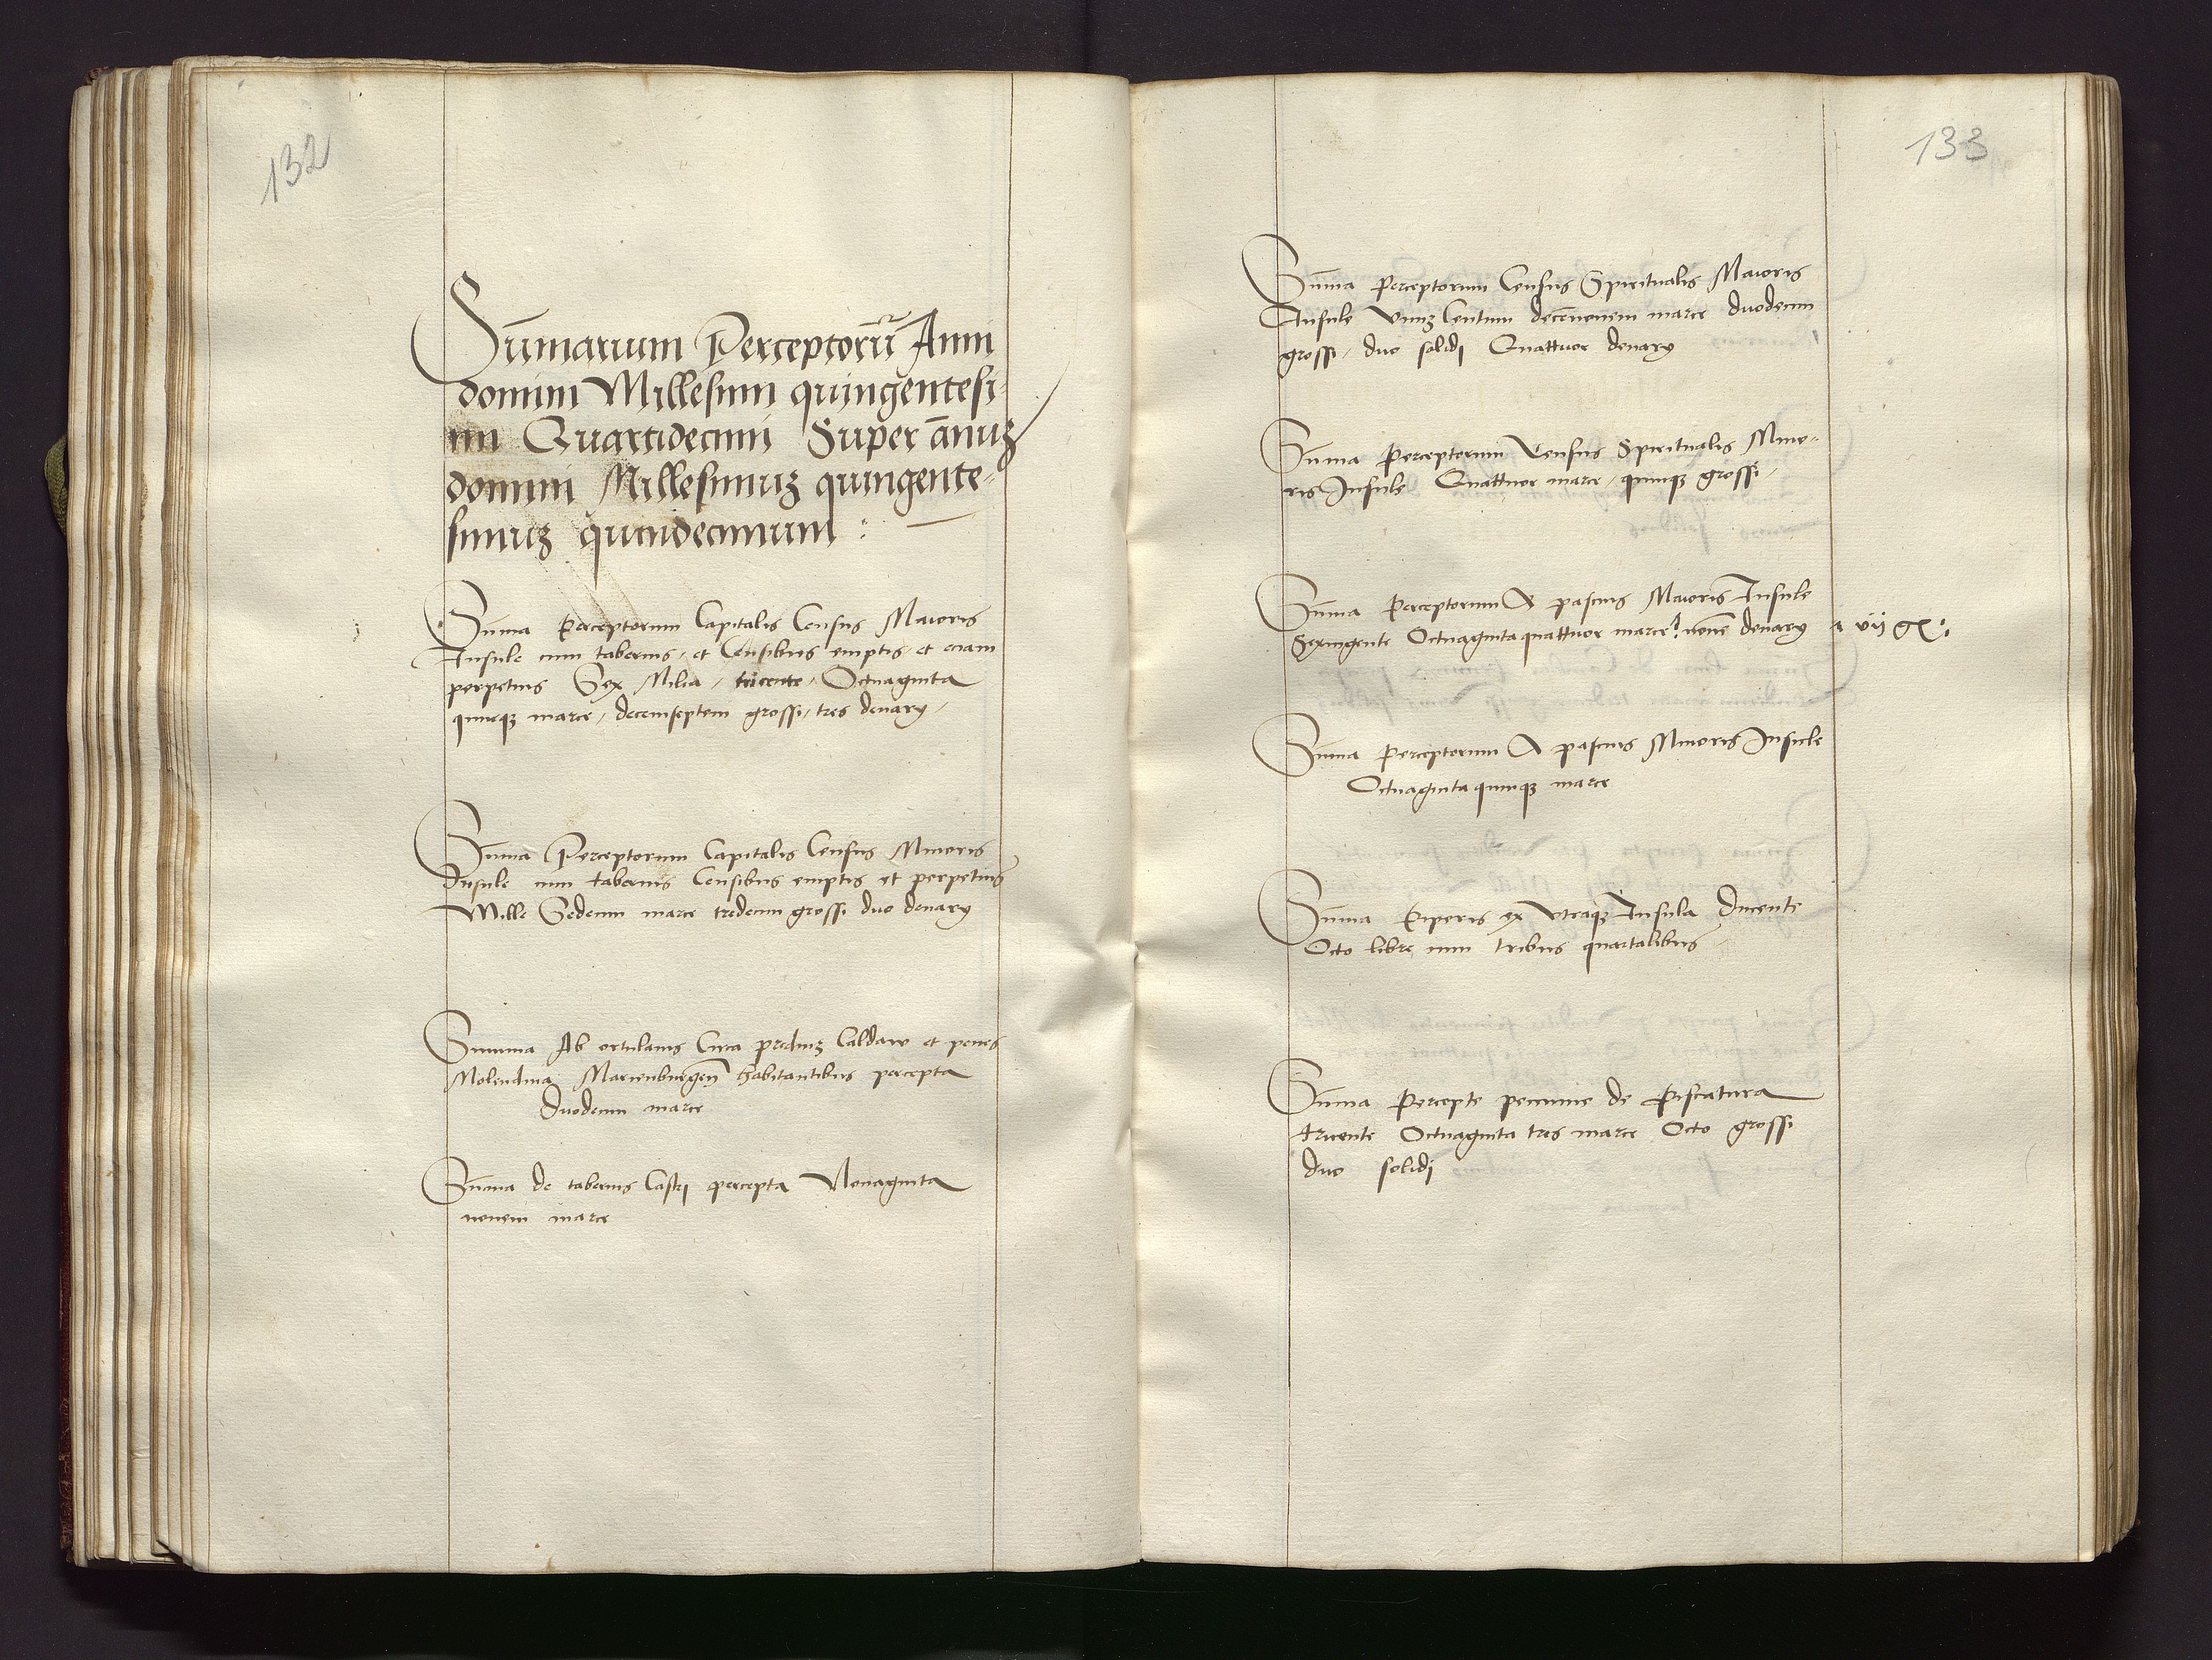 132
Sum̄arium Perceptorū Anni
domini Millesimi quingentesi-
mi Quartidecimi Super an̄uʒ
domini Millesimuʒ quingente-
simuʒ quindecimum :
Sum̄a Perceptorum Capitalis Census Maioris
Insule cum tabernis, et Censibus emptis, et eciam
perpetuis Sex Milia, tricente, Octuaginta
quinqʒ marce, decemseptem grossi, tres denarӱ,
Sum̄a Perceptorum Capitalis Census Minoris
Insule cum tabernis Censibus emptis et perpetuis
Mille Sedecim marce tredecim grossi duo denarӱ
Summa Ab ortulanis Circa prediuʒ Caldaw et penes
Molendina Marienburgen̄ habitantibus percepta
Duodecim marce
Sum̄a de tabernis Castrj percepta Nonaginta
nouem marce
133
Sum̄a Perceptorum Census Spiritualis Maioris
Insule Vnuʒ Centum decēnouem marce duodecim
grossi, duo solidj Quattuor denarӱ
Sum̄a Perceptorum Census Spiritualis Mino-
ris Insule Quattuor marce, quinqʒ grossi,
Sum̄a Perceptorum A pascuis Maioris Insule
Sexingente Octuaginta quattuor marce nouē denarӱ
Sum̄a Perceptorum A pascuis Minoris Insule
Octuaginta quinqʒ marce
Sum̄a Piperis ex Vtraqʒ Insula Ducente
Octo libre cum tribus quartalibus
Sum̄a Percepte pecunie de Piscatura
tricente Octuaginta tres marce Octo grossi
duo solidj